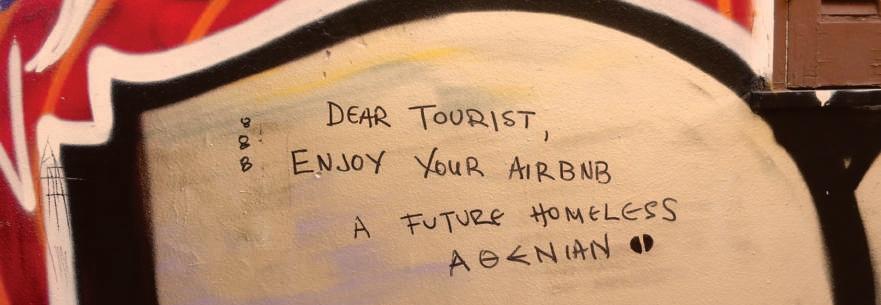 8
8
8
DEAR TOURIST,
ENJOY YOUR AIRBNB
A FUTURE HOMELESS
AΘENIAN